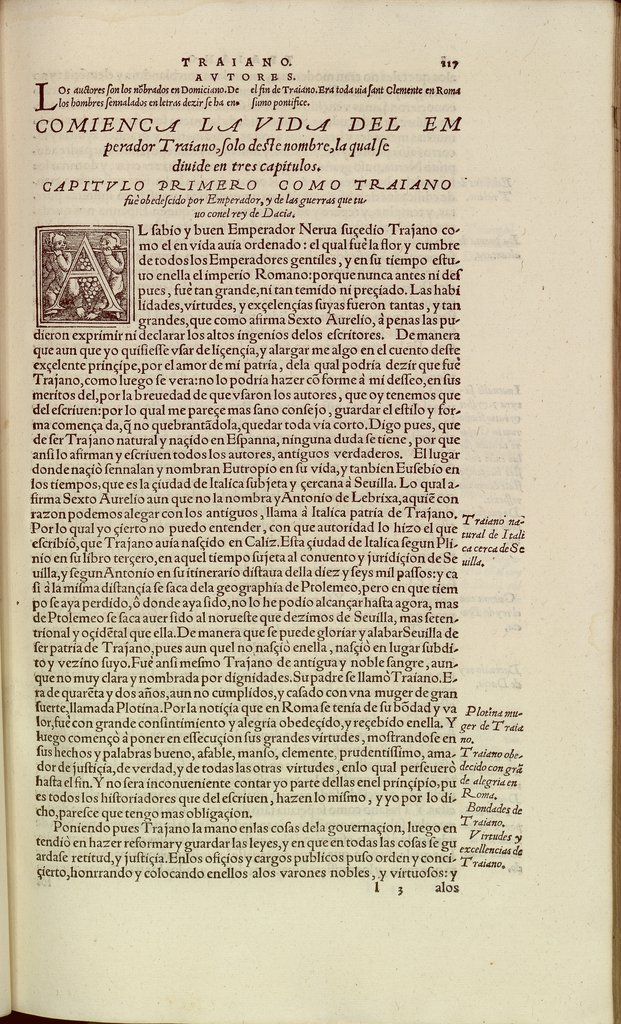 TRAIANO. 117
AVTORES.
LOs auctores son los nõbrados en Domiciano. De
los hombres sennalados en letras dezir se ha en
el fin de Traiano. Era toda uia sant Clemente en Roma
sumo pontifice.
COMIENCA LA VIDA DEL EM
perador Traiano, solo deste nombre, la qual se
diuide en tres capitulos.
CAPITVLO PRIMERO COMO TRAIANO
fuè obedescido por Emperador, y de las guerras que tu-
uo con el rey de Dacia.
AL sabio y buen Emperador Nerua suçedio Trajano co-
mo el en vida auia ordenado: el qual fuè la flor y cumbre
de todos los Emperadores gentiles, y en su tiempo estu-
uo enella el imperio Romano: porque nunca antes ni des
pues, fuè tan grande, ni tan temido ni preçiado. Las habi
lidades, virtudes, y exçelençias suyas fueron tantas, y tan
grandes, que como afirma Sexto Aurelio, à penas las pu-
dieron exprimir ni declarar los altos ingenios delos escritores. De manera
que aun que yo quisiesse vsar de liçençia, y alargar me algo en el cuento deste
exçelente prinçipe, por el amor de mi patria, dela qual podria dezir que fuè
Trajano, como luego se vera: no lo podria hazer cõforme à mi desseo, en sus
meritos del, por la breuedad de que vsaron los autores, que oy tenemos que
del escriuen: por lo qual me pareçe mas sano consejo, guardar el estilo y for-
ma comença da, q̃ no quebrantãdola, quedar toda vía corto. Digo pues, que
de ser Trajano natural y naçido en Espanna, ninguna duda se tiene, por que
ansi lo afirman y escriuen todos los autores, antiguos verdaderos. El lugar
donde naçiò sennalan y nombran Eutropio en su vida, y tanbien Eusebio en
los tiempos, que es la çiudad de Italica subjeta y çercana à Seuilla. Lo qual a-
firma Sexto Aurelio aun que no la nombra y Antonio de Lebrixa, aquiẽ con
razon podemos alegar con los antiguos, llama à Italica patria de Trajano.
Por lo qual yo çierto no puedo entender, con que autoridad lo hizo el que
escribiò, que Trajano auia nasçido en Caliz. Esta çiudad de Italica segun Pli-
nio en su libro terçero, en aquel tiempo sujeta al conuento y juridiçion de Se
uilla, y segun Antonio en su itinerario distaua della diez y seys mil passos: y ca
si à la misma distançia se saca dela geographia de Ptolemeo, pero en que tiem
po se aya perdido, ò donde aya sido, no lo he podio alcançar hasta agora, mas
de Ptolemeo se saca auer sido al norueste que dezimos de Seuilla, mas seten-
trional y oçidẽtal que ella. De manera que se puede gloriar y alabar Seuilla de
ser patria de Trajano, pues aun quel no nasçiò enella, nasçiò en lugar subdi-
to y vezino suyo. Fuè ansi mesmo Trajano de antigua y noble sangre, aun-
que no muy clara y nombrada por dignidades. Su padre se llamò Traiano. E-
ra de quarẽta y dos años, aun no cumplidos, y casado con vna muger de gran
suerte, llamada Plotina. Por la notiçia que en Roma se tenia de su bõdad y va
lor, fuè con grande consintimiento y alegria obedeçido, y reçebido enella. Y
luego començò à poner en essecuçion sus grandes virtudes, mostrandose en
sus hechos y palabras bueno, afable, manso, clemente, prudentissimo, ama-
dor de justiçia, de verdad, y de todas las otras virtudes, enlo qual perseuerò
hasta el fin. Y no sera inconueniente contar yo parte dellas enel prinçipio, pu
es todos los historiadores que del escriuen, hazen lo mismo, y yo por lo di-
cho, paresce que tengo mas obligaçion.
Poniendo pues Trajano la mano enlas cosas dela gouernaçion, luego en
tendiò en hazer reformar y guardar las leyes, y en que en todas las cosas se gu
ardase retitud, y justiçia. Enlos ofiçios y cargos publicos puso orden y conci-
çierto, honrrando y colocando enellos alos varones nobles, y virtuosos: y
l 3 alos
Traiano na-
tural de Itali
ca cerca de Se
uilla.
Plotina mu-
ger de Traia
no.
Traiano obe-
decido con grã
de alegria en
Roma.
Bondades de
Traiano.
Virtudes y
excellencias de
Traiano.